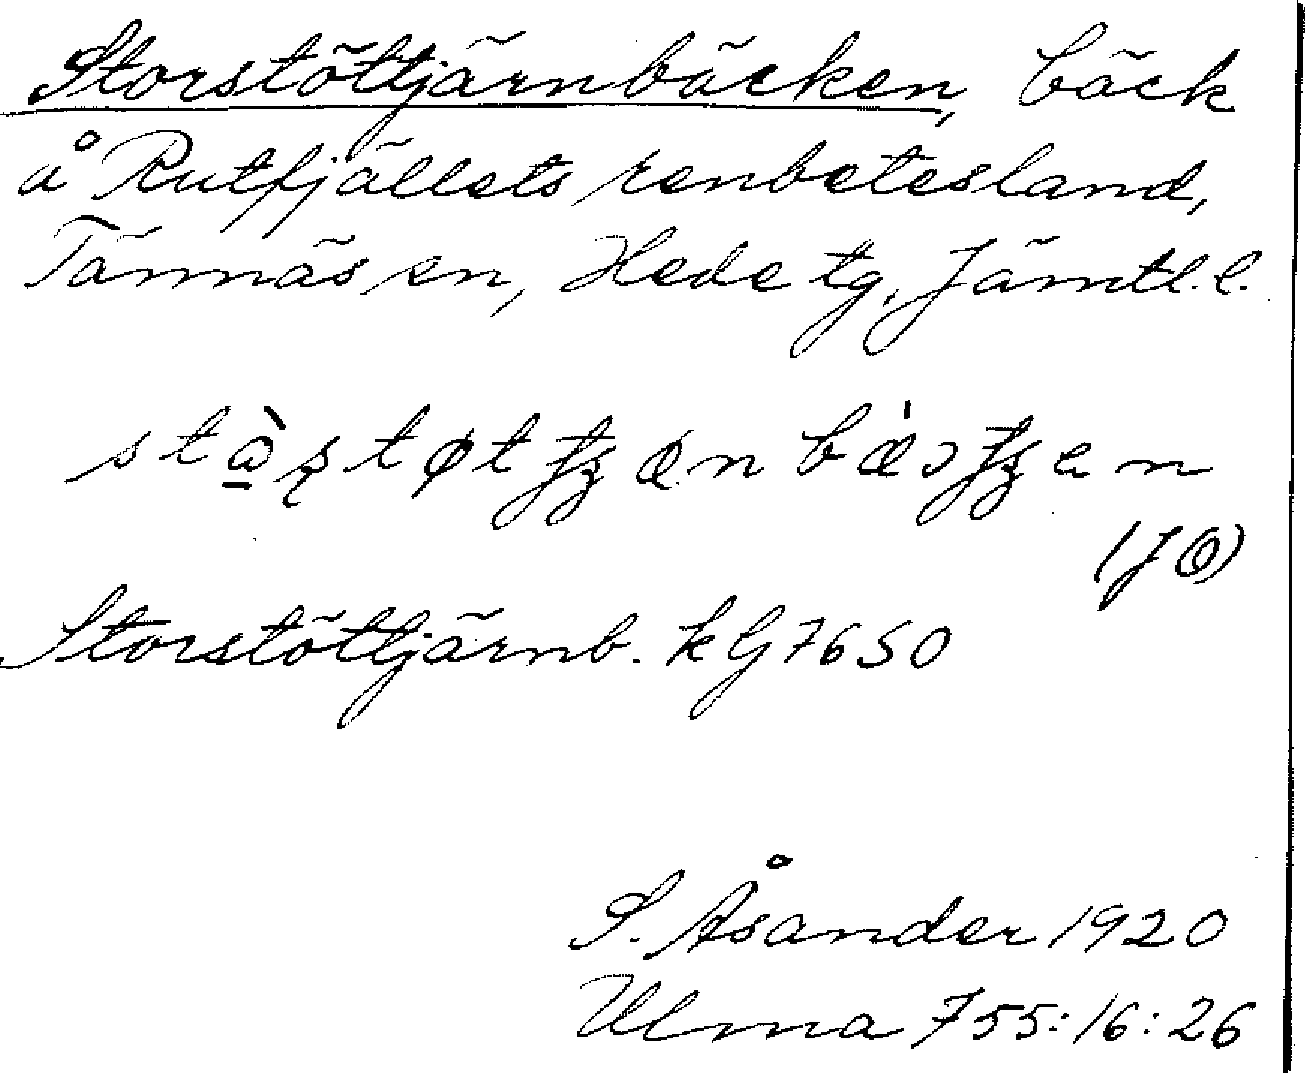 Storstöttjärnbäcken, bäck
å Rutfjällets renbetesland,
Tännäs sn, Hede tg, Jämtl. l.
(JÖ)
Storstöttjärnb. kG 7650
S. Åsander 1920
Ulma 755:16:26